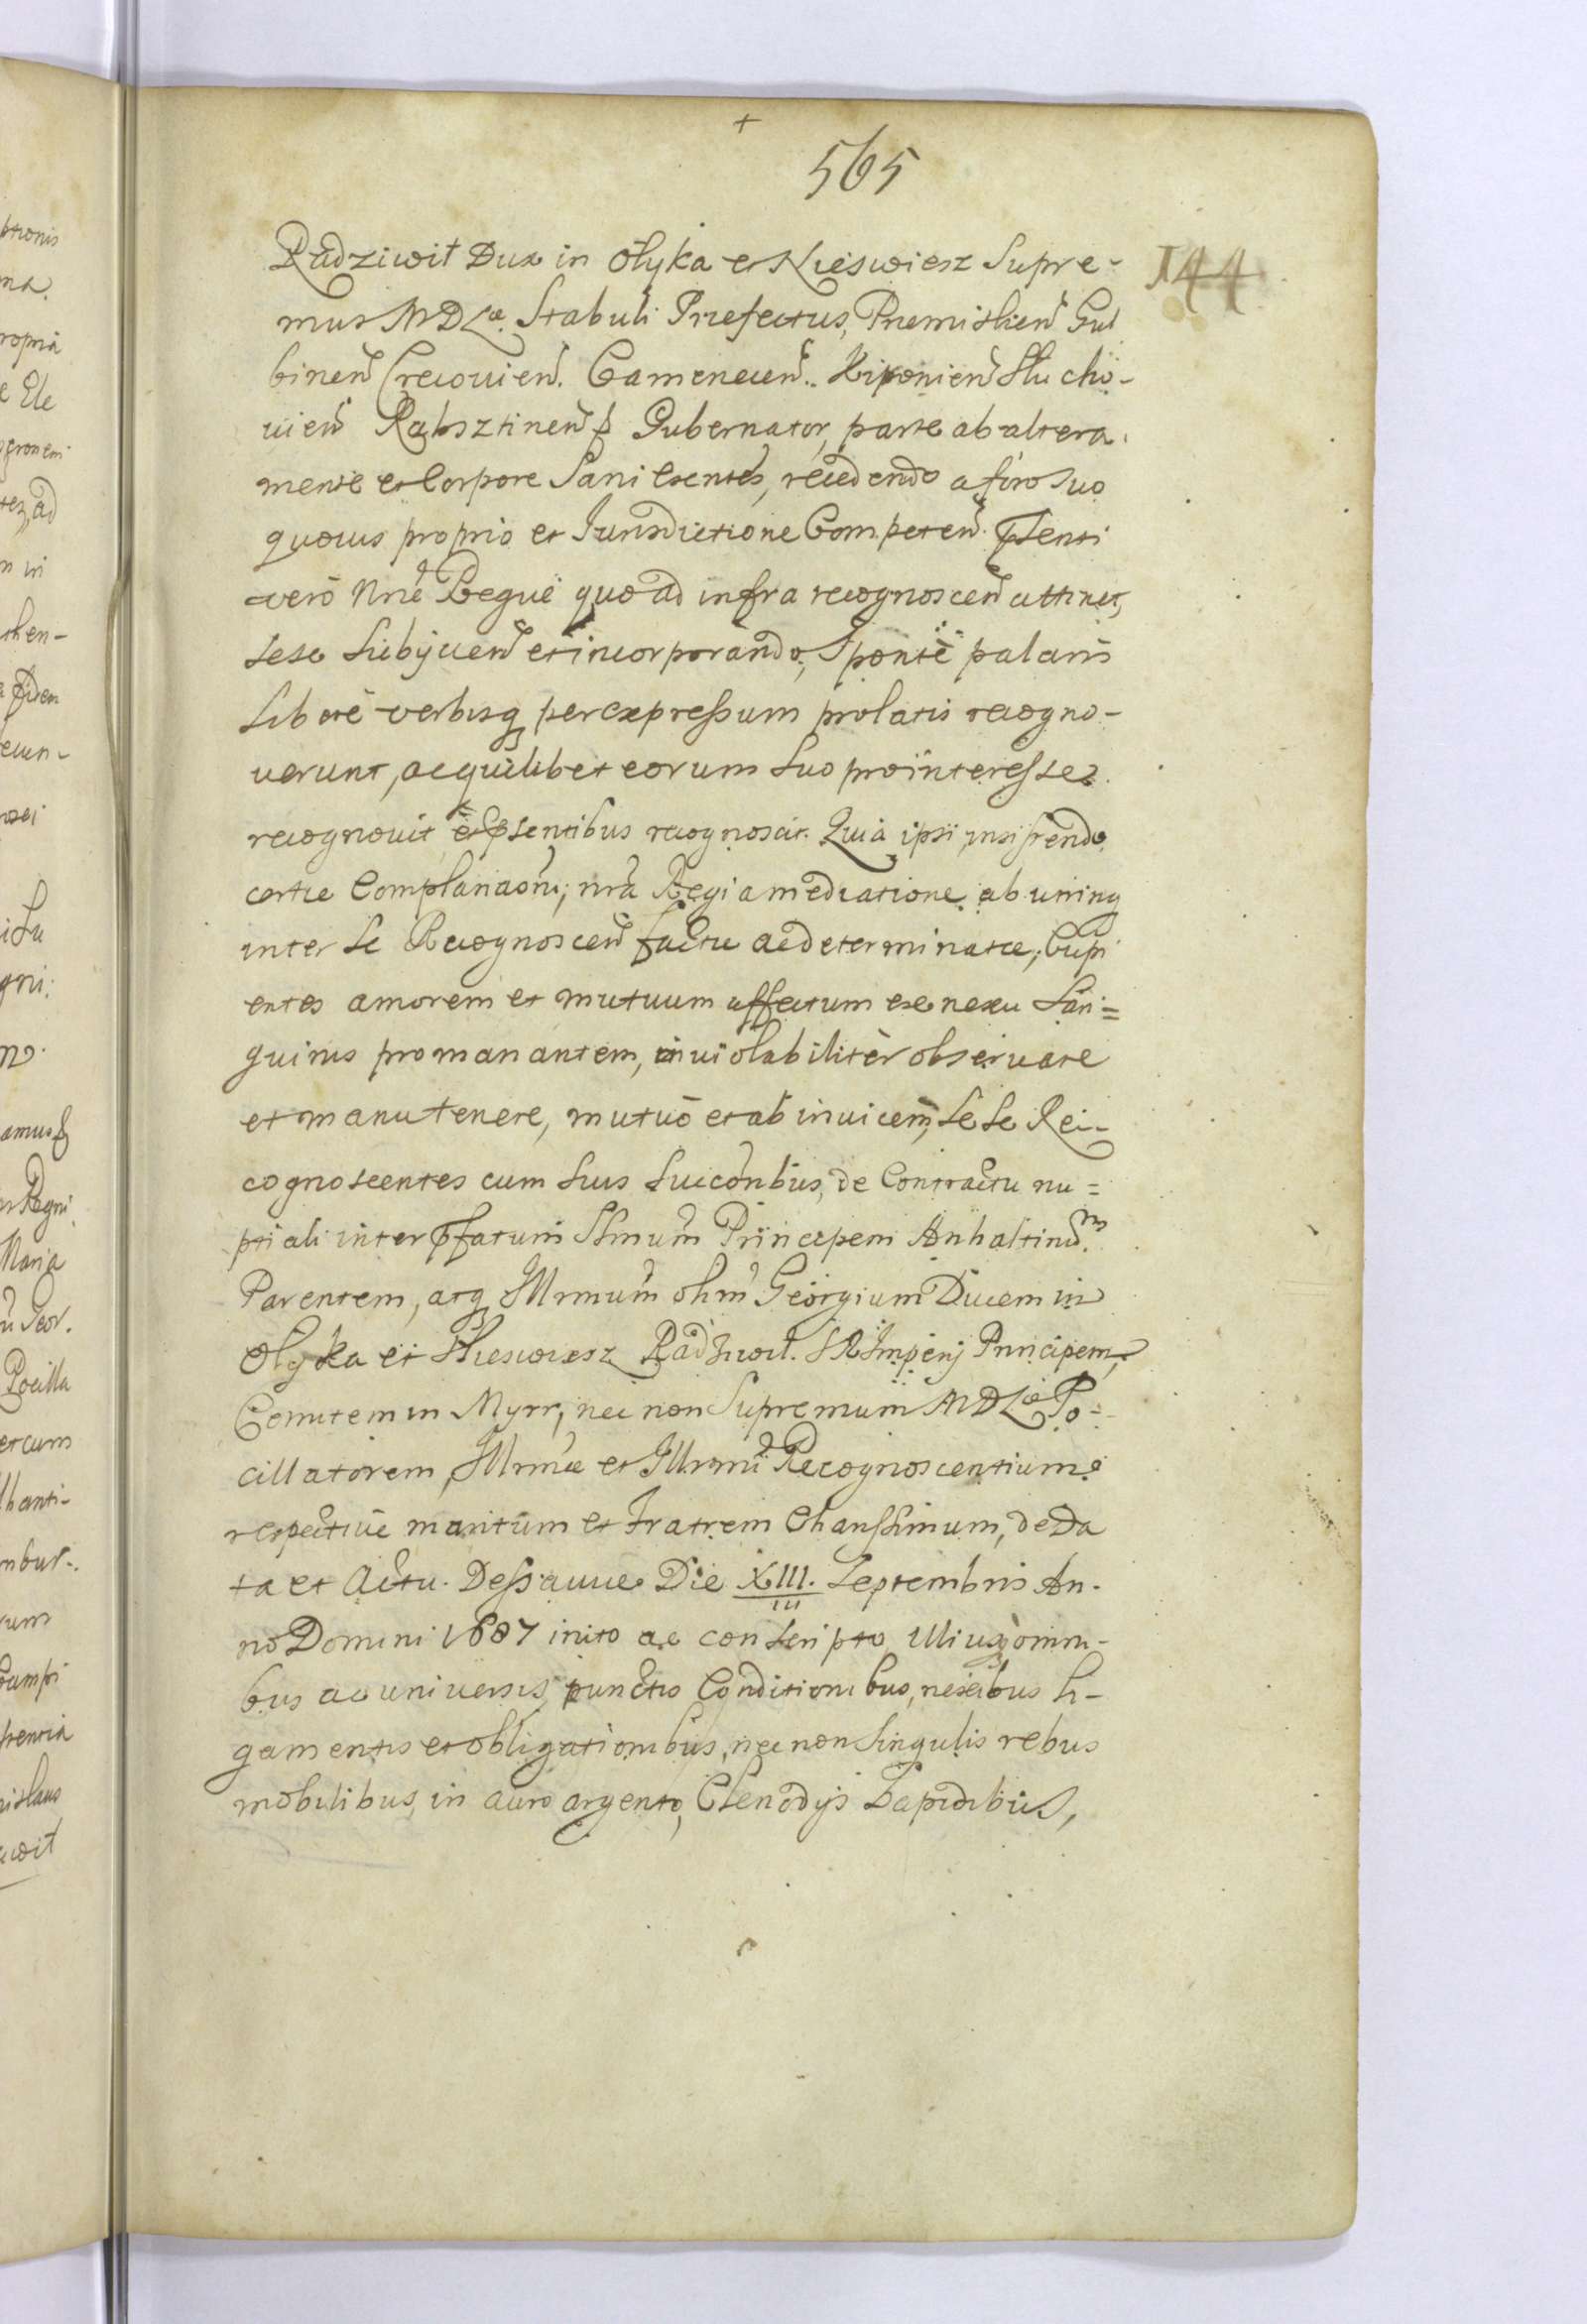 +
565
144
Radziwił Dux in Olyka et Nieswiesz Supre-
mus MDLæ. Stabuli Præfectus, Premislien Gul
binen Crecovien. Camenecen. Kiponien Stucho-
uien Rabsztinen Gubernator, parte ab altera.
mente et Corpore Sani Exentes, recedendo a foro suo
quouis proprio et Jurisdictione Competen. Psenti
vero Nrae Regiae quo ad infra recognoscen attinet,
sese Subijcien et incorporando, Sponte palam
Libere verbisq per expressum prolatis recogno-
uerunt, ac quilibet eorum Suo pro interesse
recognouit et psentibus recognoscit. Quia ipsi insistendo
certæ Complanaoni, nra Regia mediatione ab utrinq
inter se Recognoscen factæ ac determinatæ, Cupi
entes amorem et mutuum affectum ex nexu San=
guinis promanantem, inuiolabiliter obseruare
et manutenere, mutuo et ab inuicem, sese Re-
cognoscentes cum Suis Succonbus, de Contractu nu=
ptiali inter pfatum Ssmum Principem Anhaltinum.
Parentem, atq Illrmum olim Georgium Ducem in
Olyka et Nieswiesz Radziwił. SRImperij Principem,
Comitem in Myrr, nec non Supremum MDLæ Po-
cillatorem, Illrmæ et Illrmi Recognoscentium
respectiue maritum et Fratrem Charissimum, de Da
ta et Actu. Dessauiæ Die XIII. Septembris An-
no Domini 1687 inito ac conscripto, illiusq omni-
bus ac uniuersis, punctis Conditionibus, nexibus li-
gamentis et obligationibus, nec non singulis rebus
mobilibus, in auro argento, Clenodijs Lapidibus,